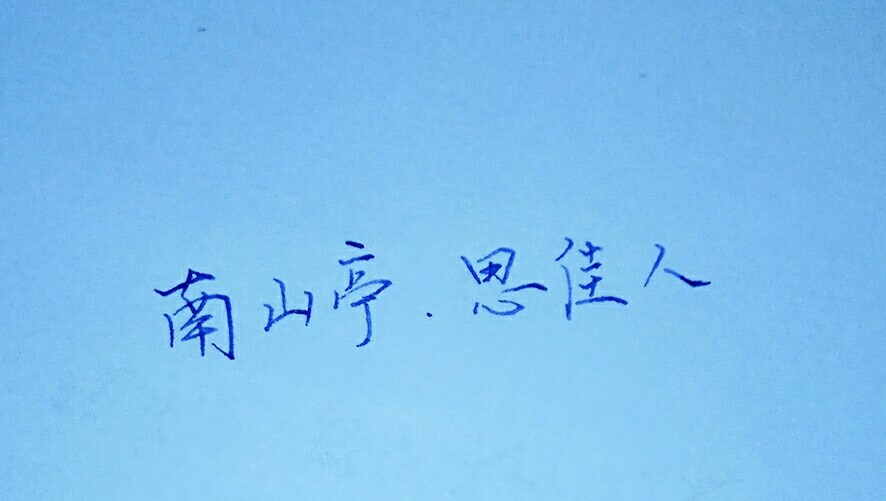 南山亭.思佳人